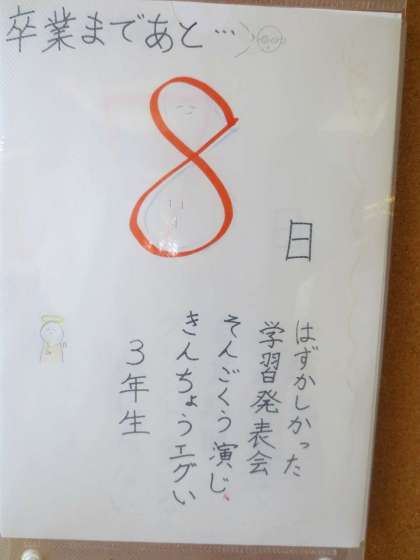 卒業まであと…
8
日
はずかしかった
学習発表会
そんごくう演じ、
きんちょうエグい
3年生